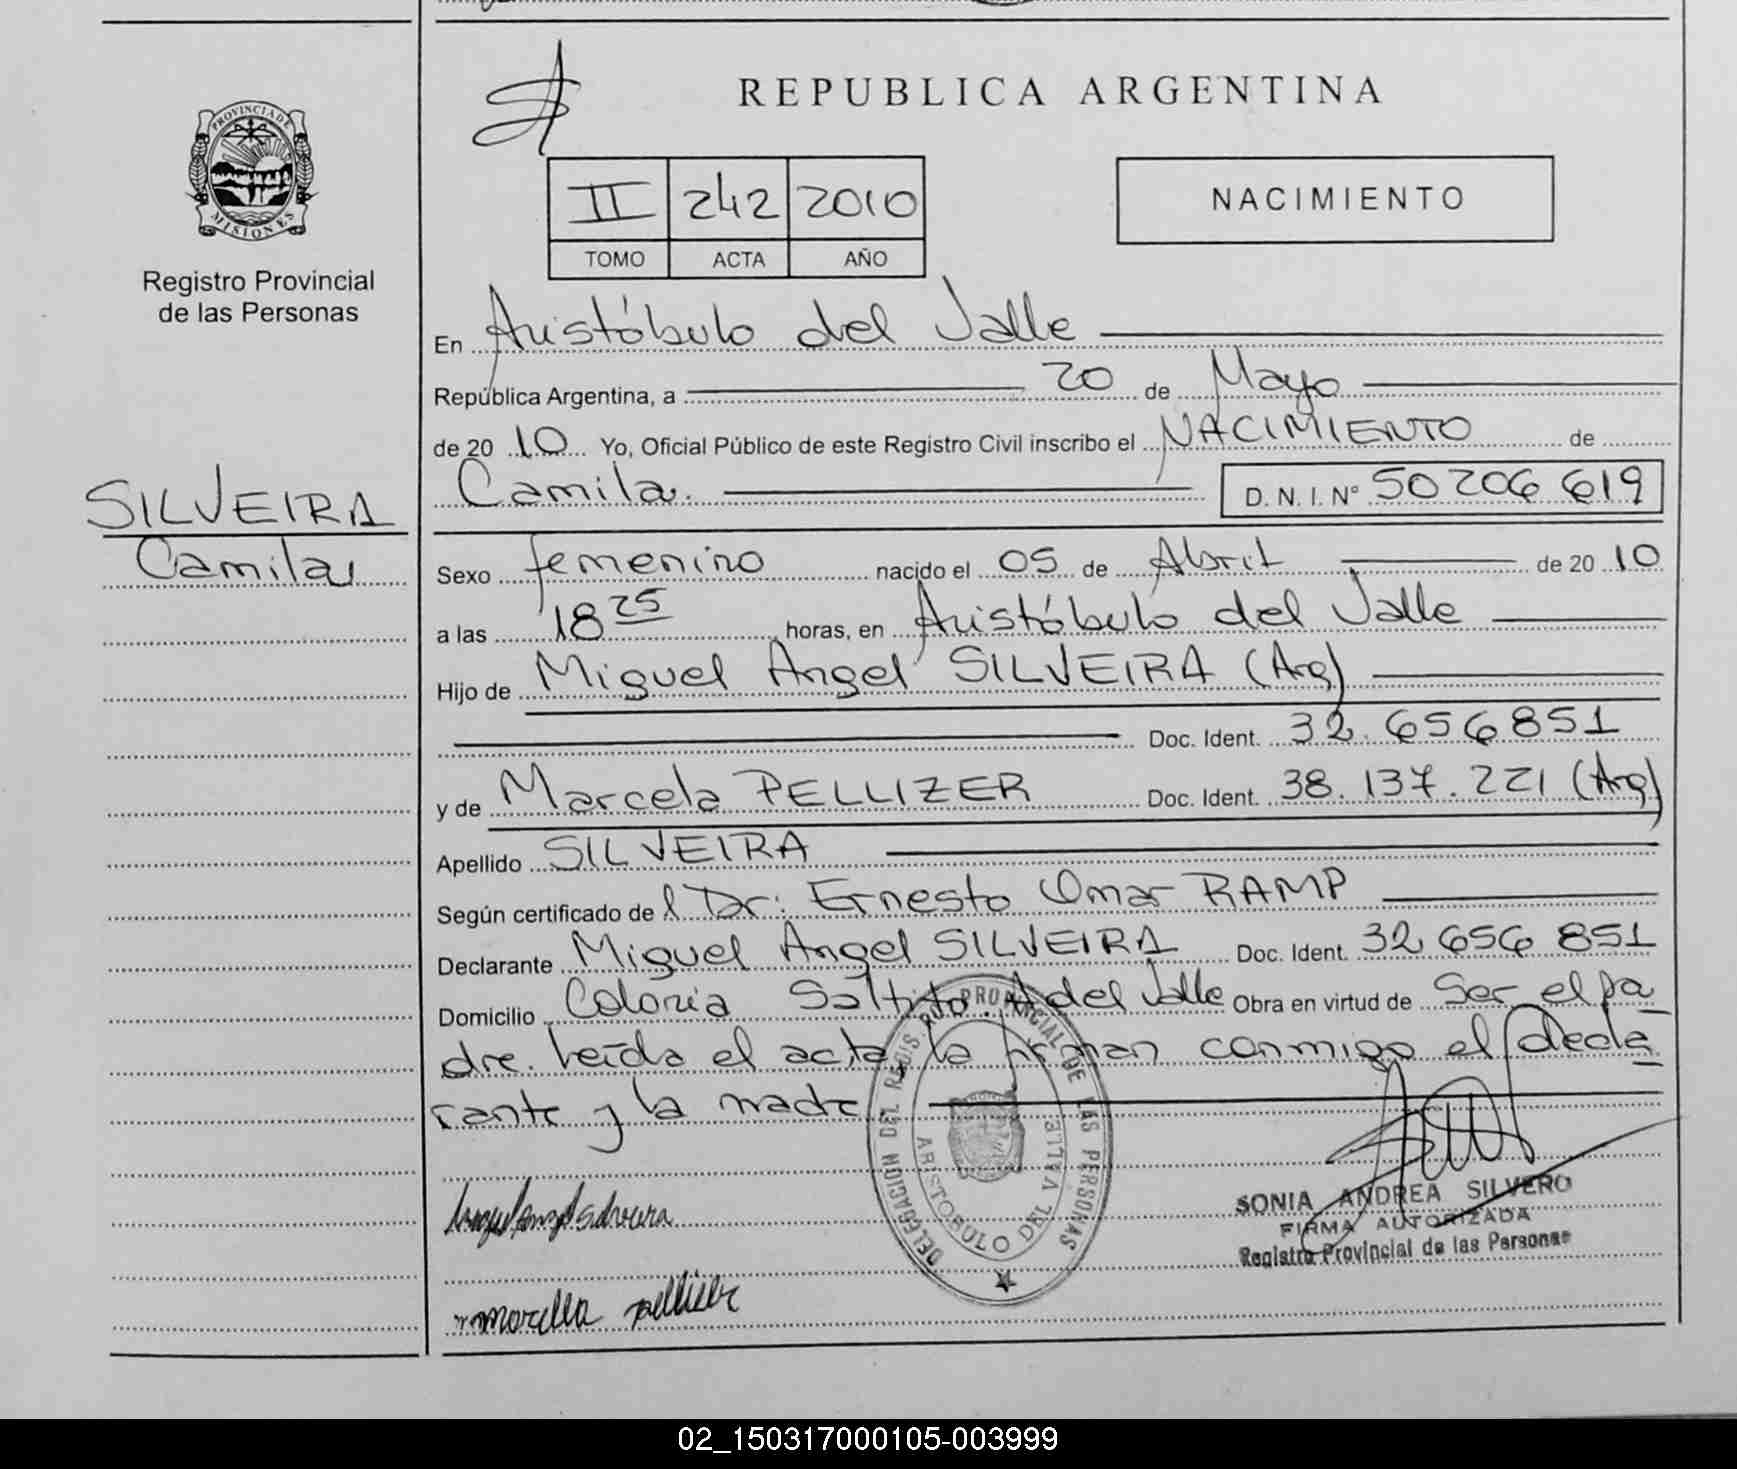 PROVINCIA DE
MISIONES
Registro Provincial
de las Personas
SILVEIRA
Camila
REPUBLICA ARGENTINA
II 242 2010
TOMO ACTA AÑO
NACIMIENTO
En Aristóbulo del Valle
República Argentina, a 20 de Mayo
de 20 10 Yo, Oficial Público de este Registro Civil inscribo el NACIMIENTO de
Camila. D. N. I. Nº 50 206 619
Sexo femenino nacido el 05 de Abril de 20 10
a las 18 25 horas, en Aristóbulo del Valle
Hijo de Miguel Angel SILVEIRA (Arg)
Doc. Ident. 32.656851
y de Marcela PELLIZER Doc. Ident. 38.137.221 (Arg)
Apellido SILVEIRA
Según certificado de l Dr: Ernesto Omar RAMP
Declarante Miguel Angel SILVEIRA Doc. Ident. 32 656 851
Domicilio Colonia Saltito A del Valle Obra en virtud de Ser el pa
dre. Leída el acta la firman conmigo el decla
rante y la madre
DELEGACION DEL REGISTRO PROVINCIAL DE LAS PERSONAS
ARISTOBULO DEL VALLE
SONIA ANDREA SILVERO
FIRMA AUTORIZADA
Registro Provincial de las Personas
02_150317000105-003999